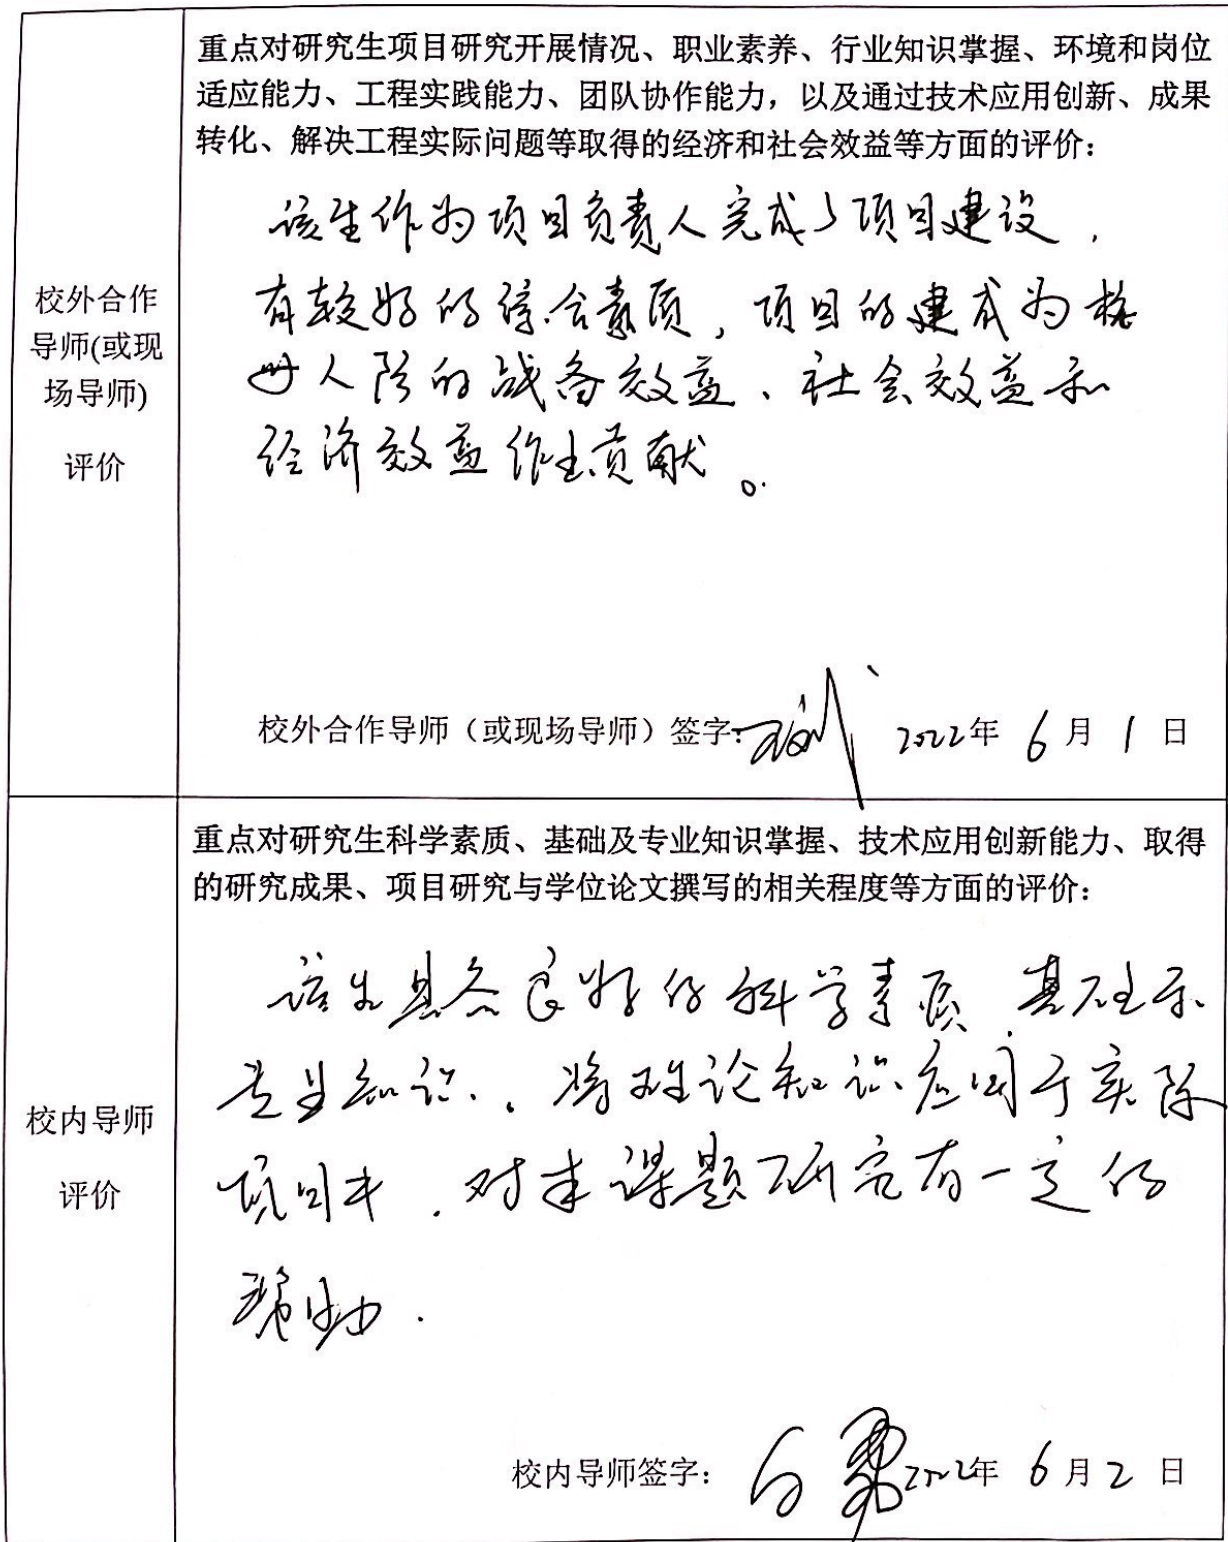 重点对研究生项目研究开展情况、职业素养、行业知识掌握、环境和岗位
适应能力、工程实践能力、团队协作能力，以及通过技术应用创新、成果
转化、解决工程实际问题等取得的经济和社会效益等方面的评价：
校外合作
导师(或现
场导师)
评价
该生作为项目负责人完成了项目建设，
有较好的综合素质，项目的建成为
人防的战备效益、社会效益和
经济效益作出贡献。
校外合作导师（或现场导师）签字： 2022年 6 月 1 日
重点对研究生科学素质、基础及专业知识掌握、技术应用创新能力、取得
的研究成果、项目研究与学位论文撰写的相关程度等方面的评价：
校内导师
评价
该生具备良好的科学素质、基础和
专业知识，将理论知识应用于实际
项目中，对本课题研究有一定的
帮助.
校内导师签字： 2022年 6 月 2 日